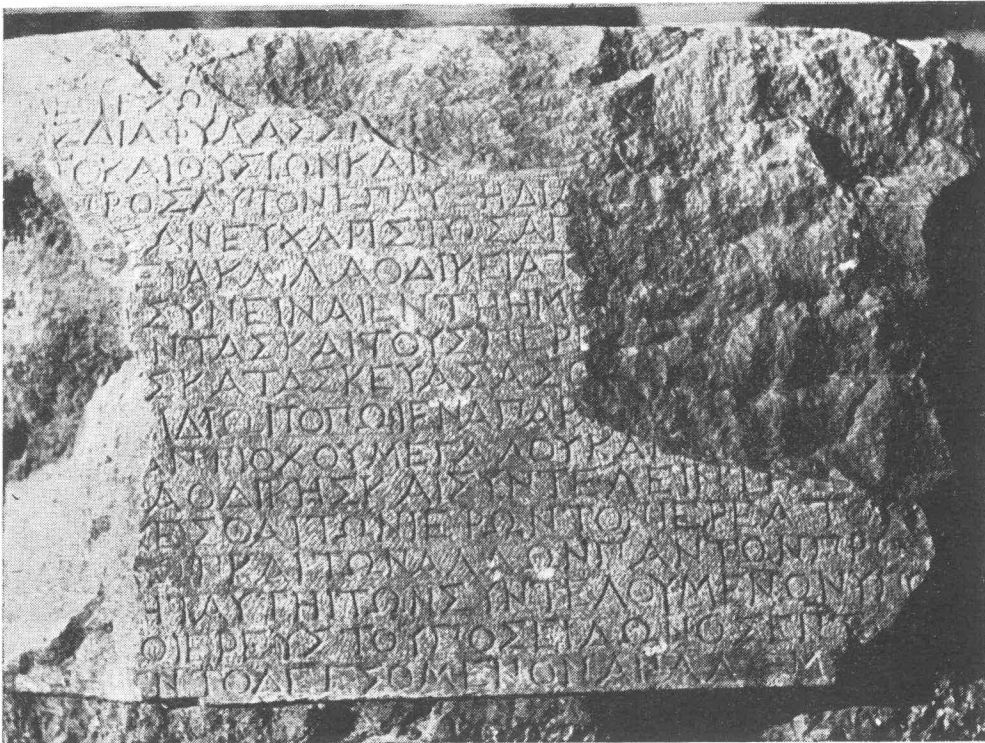 ΔΙΑΦΥΛΑΣΣ
ΚΑΙΘΥΣΙΩΝΚΑΙ
ΠΡΟΣΑΥΤΟΝΕΠΑΥΞΗΔΙΑ
ΑΝΕΥΧΑΡΙΣΤΩΣΑΠ
ΛΑΟΔΙΚΕΙΑΤ
ΣΥΝΕΙΝΑΙΕΝΤΗΗΜΕ
ΝΤΑΣΚΑΙΤΟΥΣΠΕΡ
ΣΚΑΤΑΣΚΕΥΑΣΑΣΘ
ΙΔΙΩΙΤΟΠΩΙΕΝΑΠΑΡ
ΑΝΤΙΟΧΟΥΜΕΓΑΛΟΥΚΑΙ
ΛΑΟΔΙΚΗΣΚΑΙΣΥΝΤΕΛΕΙΝ
ΕΣΘΑΙΤΩΝΙΕΡΩΝΤΟΝΙΕΡΕΑΤΟ
ΚΑΙΤΩΝΑΛΛΩΝΠΑΝΤΩΝΠΡΟ
ΗΙΑΥΤΗΙΤΩΝΣΥΝΤΕΛΟΥΜΕΝΩΝΥΠ
ΟΙΕΡΕΥΣΤΟΥΠΟΣΕΙΔΩΝΟΣΕΠ
ΝΤΟΔΕΕΣΟΜΕΝΟΝΑΝΑΛΩΜ